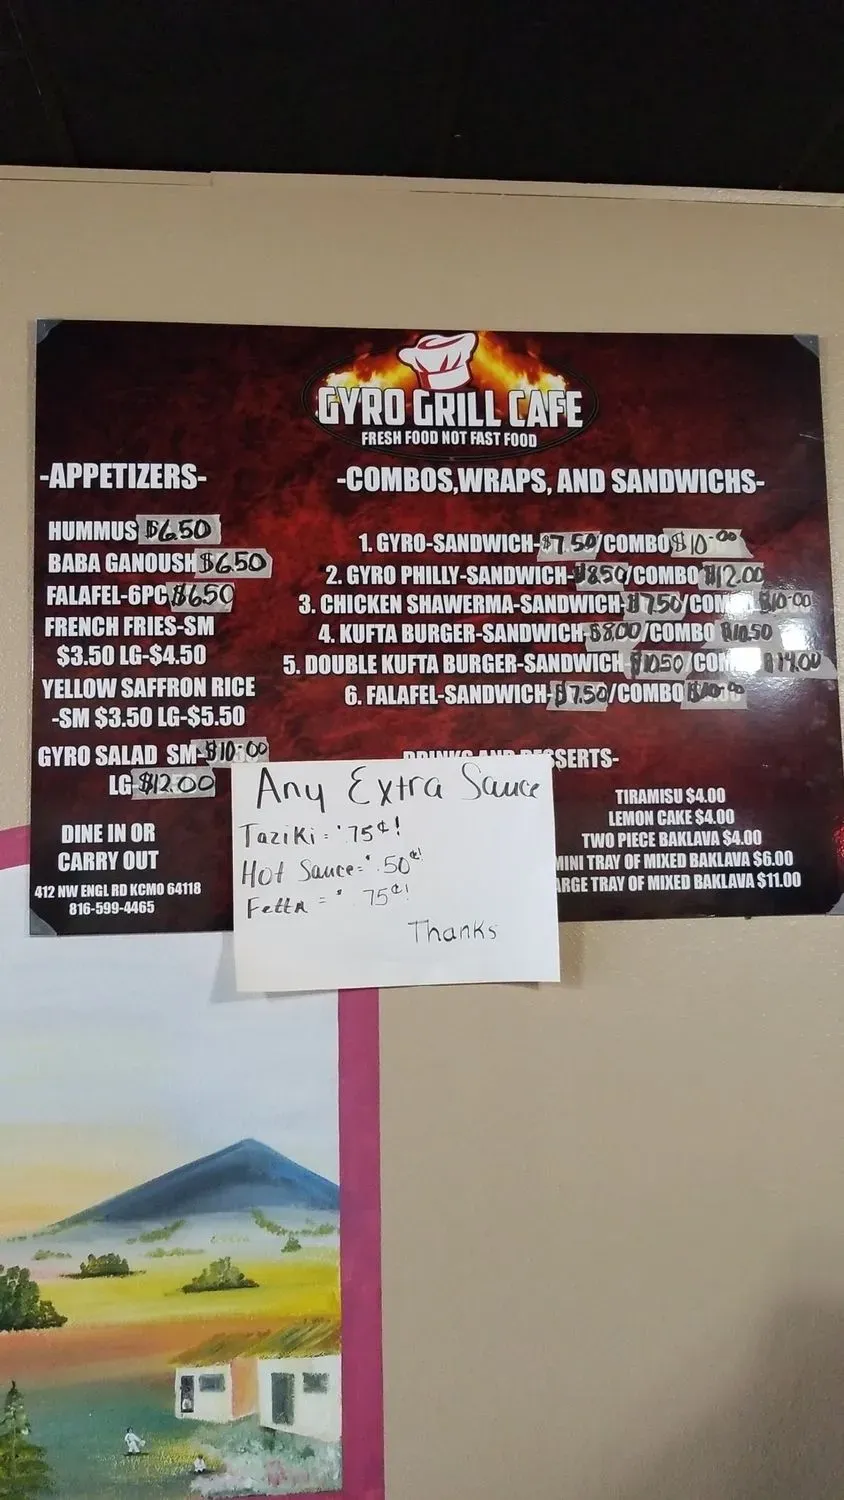 GYRO GRILL CAFE
FRESH FOOD NOT FAST FOOD
-APPETIZERS-
HUMMUS $6.50
BABA GANOUSH $6.50
FALAFEL-6PC $6.50
FRENCH FRIES-SM
$3.50 LG-$4.50
YELLOW SAFFRON RICE
-SM $3.50 LG-$5.50
GYRO SALAD SM-$10.00
LG-$12.00
DINE IN OR
CARRY OUT
412 NW ENGL RD KCMO 64118
816-599-4465
-COMBOS,WRAPS, AND SANDWICHS-
1. GYRO-SANDWICH-$7.50/COMBO $10.00
2. GYRO PHILLY-SANDWICH-$8.50/COMBO $12.00
3. CHICKEN SHAWERMA-SANDWICH-$7.50/COM $10.00
4. KUFTA BURGER-SANDWICH-$8.00/COMBO $10.50
5. DOUBLE KUFTA BURGER-SANDWICH $10.50/COM $14.00
6. FALAFEL-SANDWICH-$7.50/COMBO $10.00
DRINKS AND DESSERTS-
TIRAMISU $4.00
LEMON CAKE $4.00
TWO PIECE BAKLAVA $4.00
MINI TRAY OF MIXED BAKLAVA $6.00
ARGE TRAY OF MIXED BAKLAVA $11.00
Any Extra Sauce
Taziki = .75¢!
Hot Sauce = .50¢!
Fetta = .75¢!
Thanks